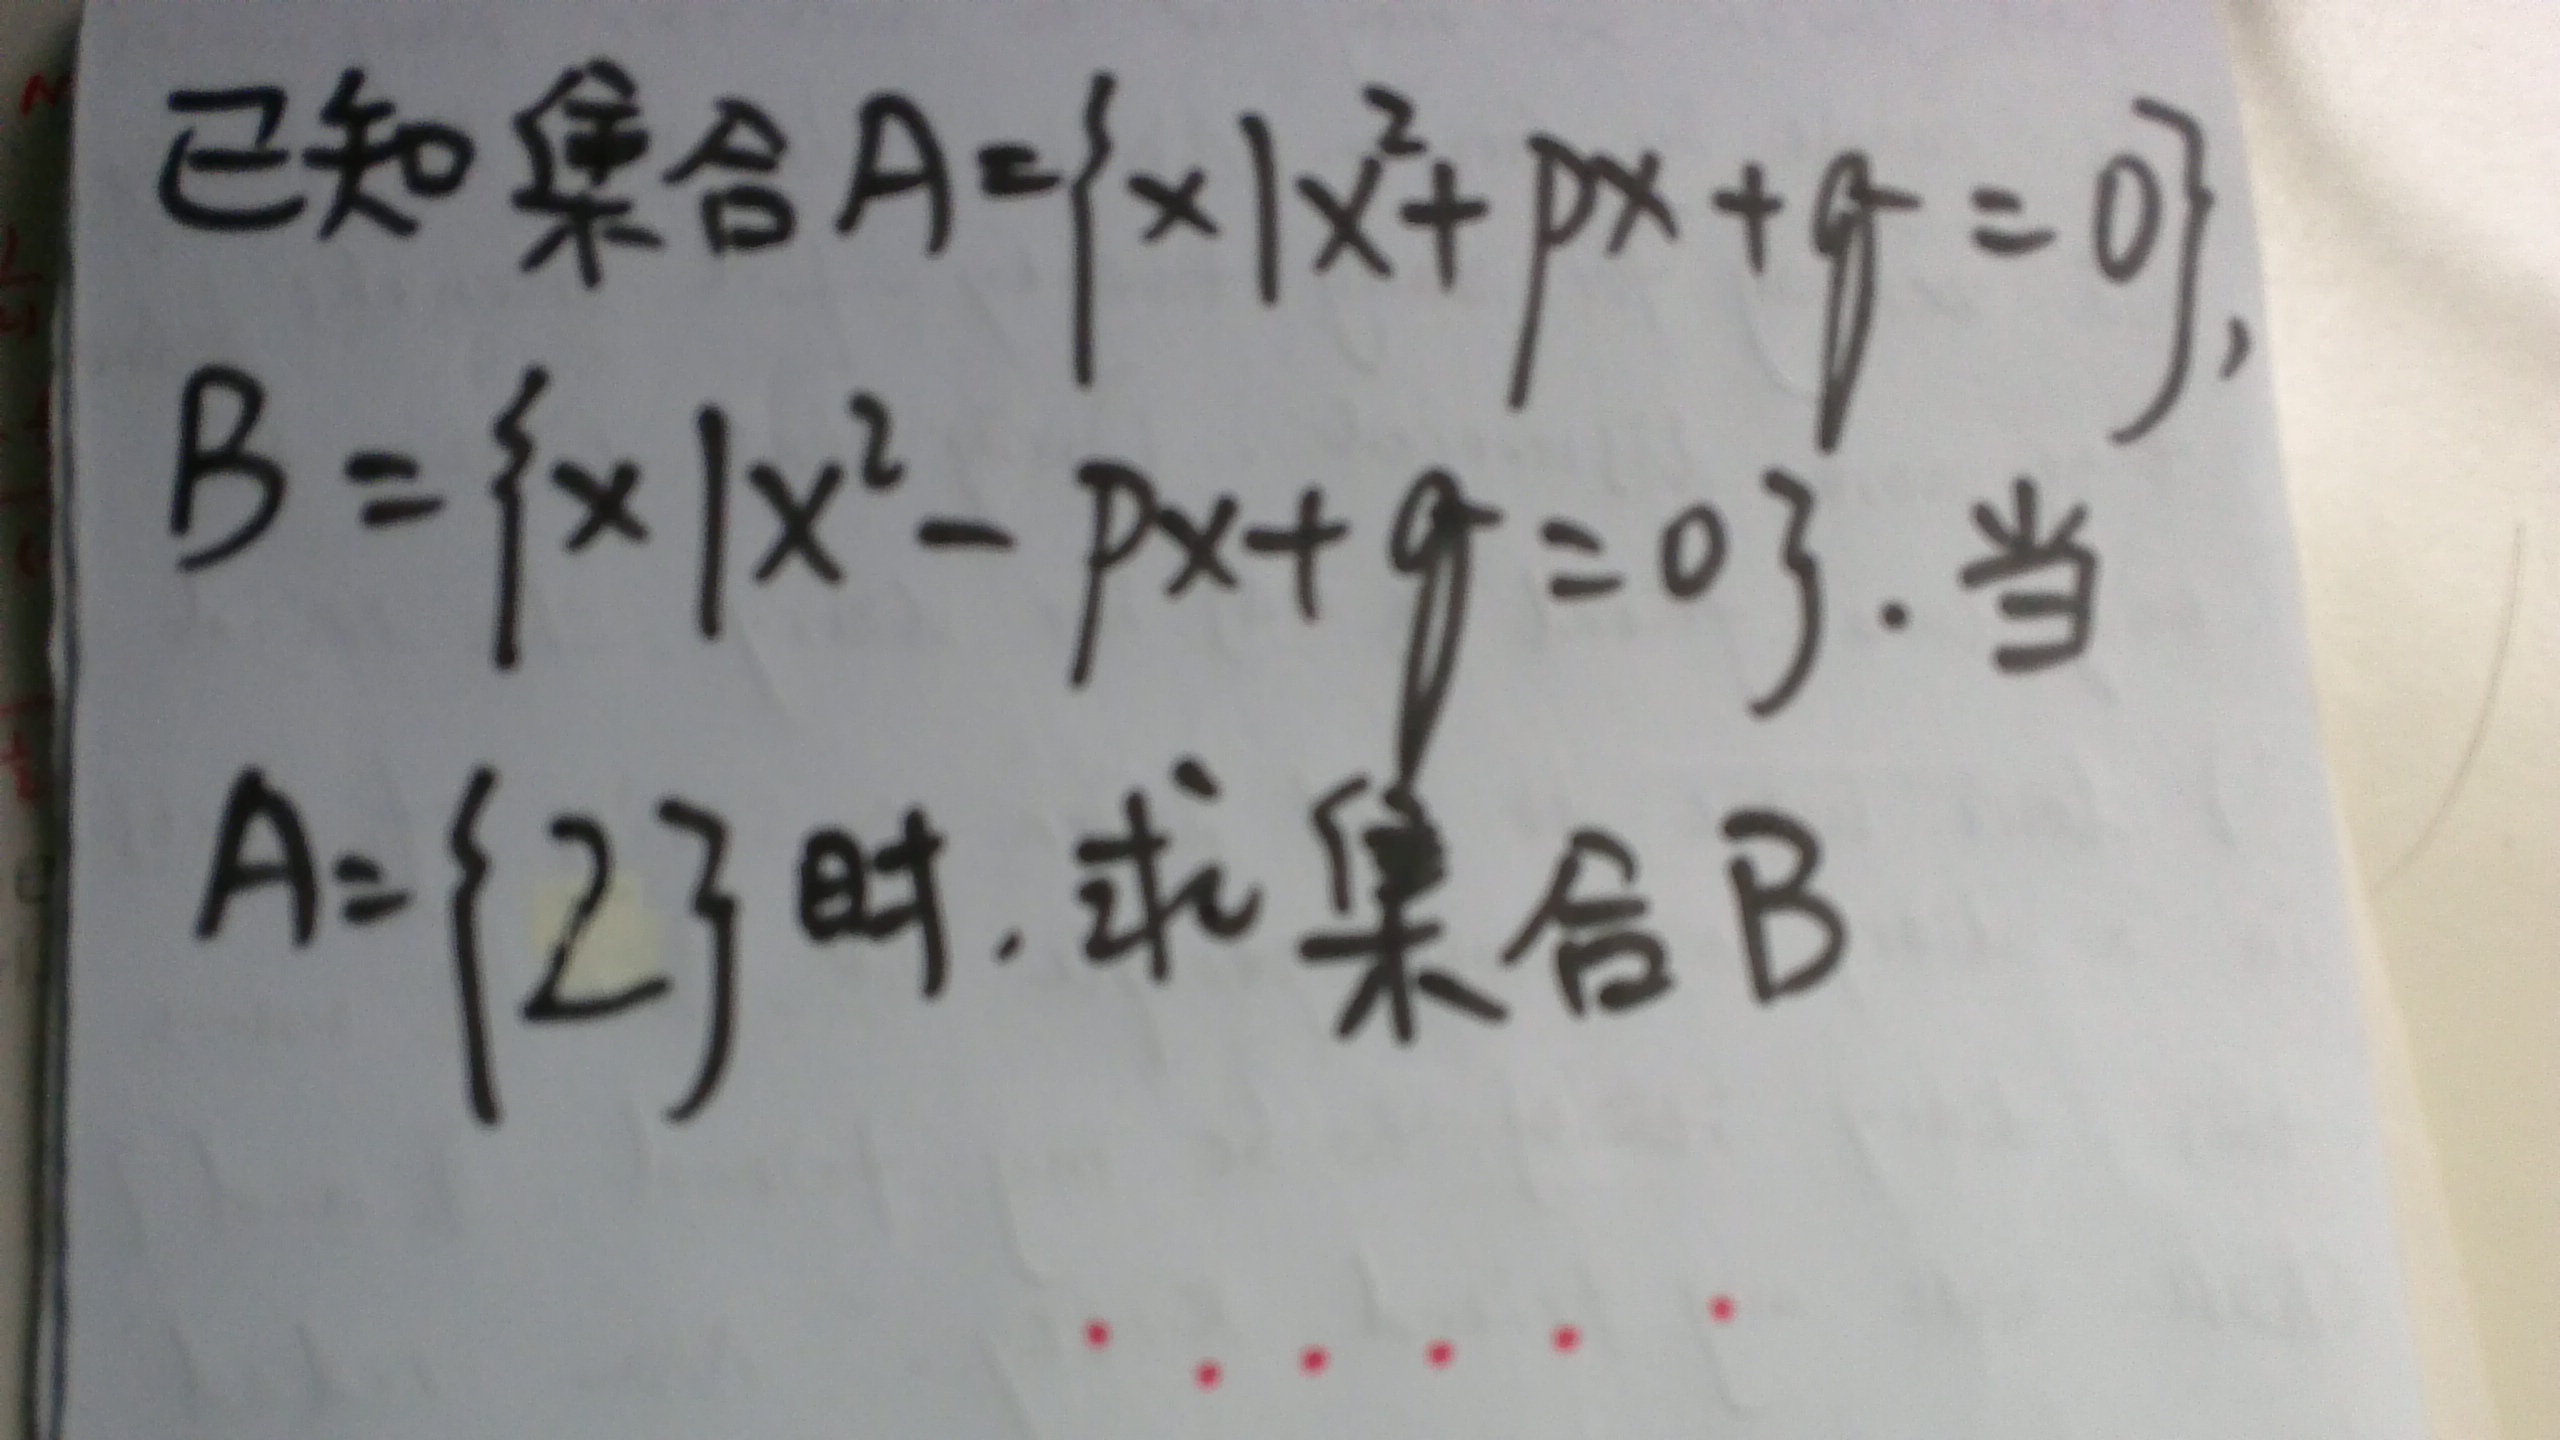 已知集合A={x|x²+px+q=0},
B={x|x²-px+q=0}.当
A={2}时.求集合B